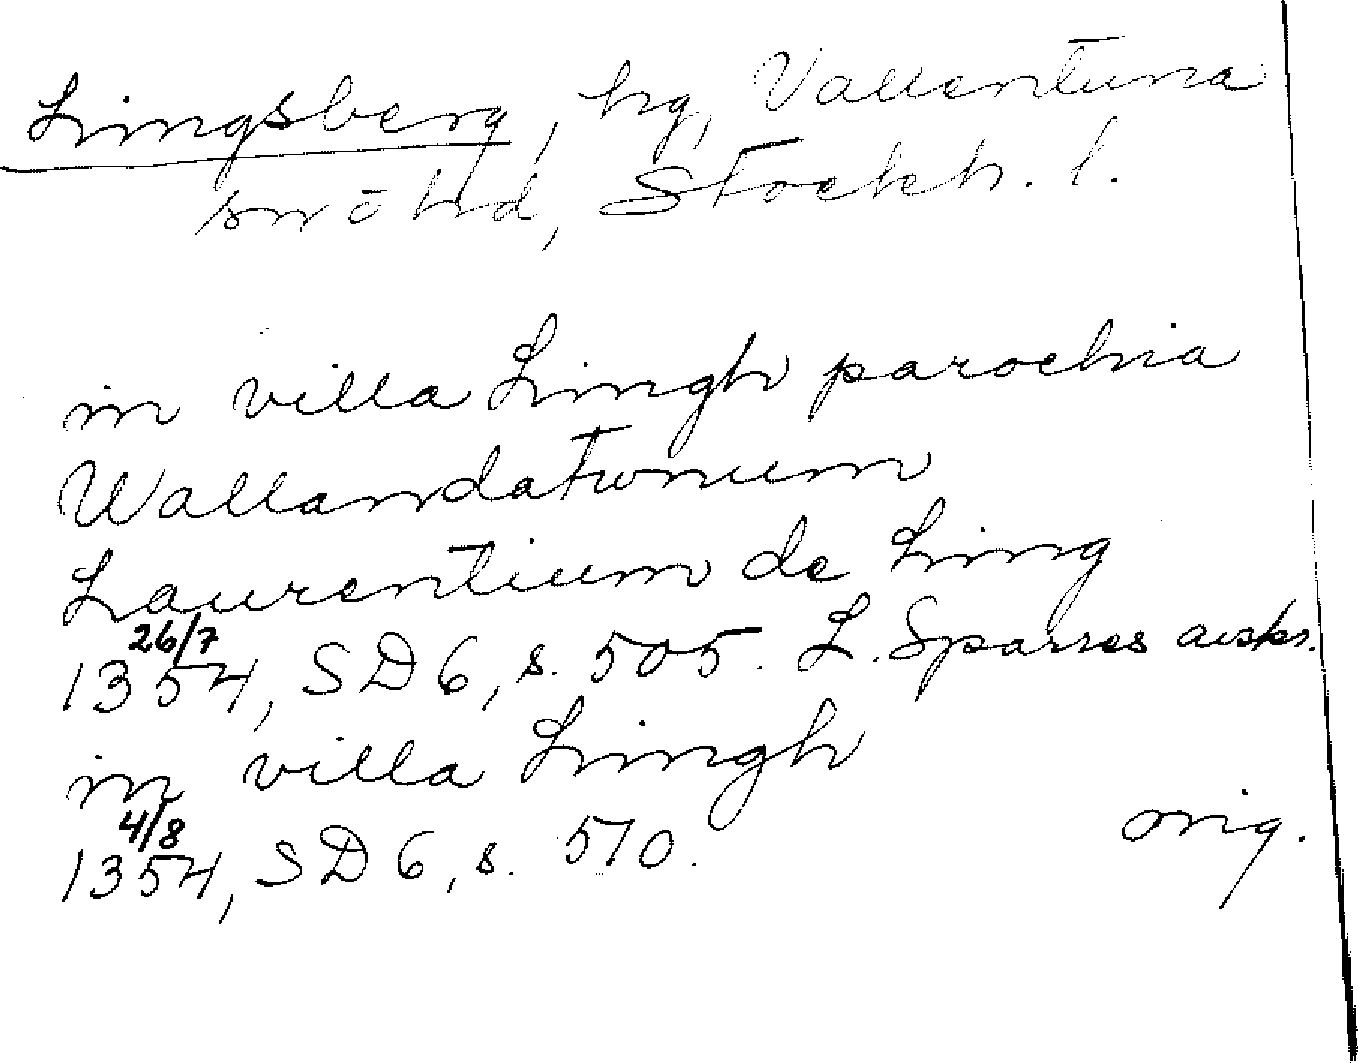 Lingsberg, hg, Vallentuna
sn o hd, Stockh. l.
in villa Lingh parochia
Wallandatunum
Laurentium de Ling
26/7
1354, SD 6, s. 505. L. Sparres avskr.
in villa Lingh
4/8
1354, SD 6, s. 510. orig.